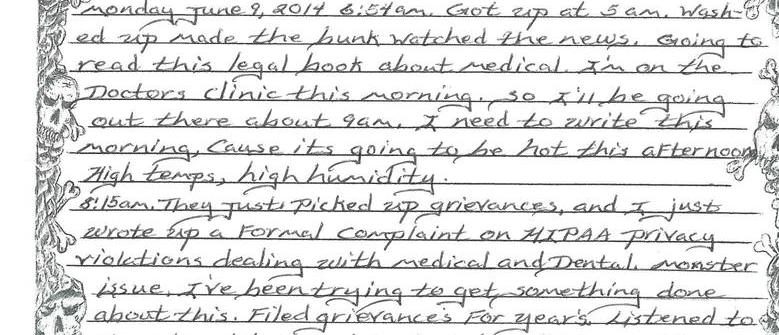 monday June 9, 2014 6:54am. Got up at 5am. Wash-
ed up made the bunk watched the news. Going to
read this legal book about medical. I'm on the
Doctors clinic this morning. so I'll be going
out there about 9am. I need to write this
morning, Cause its going to be hot this afternoon
High temps, high humidity.
8:15am. They just picked up grievances, and I just
wrote up a Formal Complaint on HIPAA privacy
violations dealing with medical and Dental. monster
issue. I've been trying to get something done
about this. Filed grievances For years. Listened to